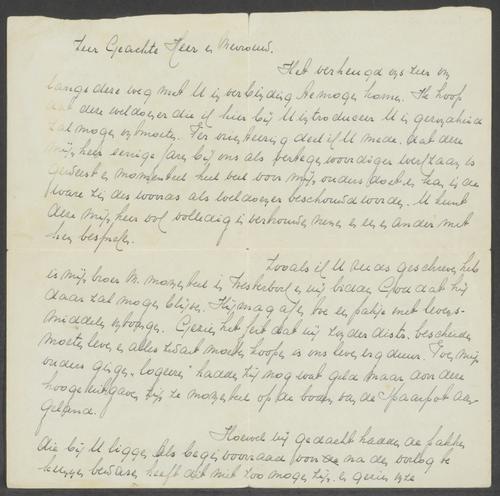 Zeer Geachte Heer en Mevrouw.
Het verheugd ons zeer om
langs deze weg met U in verbinding te mogen komen. Ik hoop
dat deze weldoener die ik hier bij U introduceer U in gezondheid
zal mogen ontmoeten. Ter orienteering deel ik U mede, dat deze
mijnheer eenige jaren bij ons als vertegenwoordiger werkzaam is
geweest en momenteel heel veel voor mijn ouders doet en kan in de
ware zin des woords als weldoener beschouwd worden. U kunt
deze mijnheer vol volledig in vertrouwen nemen en een en ander met
hem bespreken.
Zooals ik U reeds geschreven heb
is mijn broer M. momenteel in Westerbork en wij bidden God dat hij
daar zal mogen blijven. Hij mag af en toe een pakje met levens-
middelen ontvangen. Gezien het feit dat wij zonder distr. bescheiden
moeten leven en alles zwart moeten koopen is ons leven erg duur. Toen mijn
ouders gingen "logeeren" hadden zij nog wat geld maar door deze
hooge uitgaven zijn ze momenteel op de bodem van de spaarpot aan-
geland.
Hoewel wij gedacht hadden de pakken
die bij U liggen als beginvoorraad voor na den oorlog te
kunnen bewaren heeft dat niet zoo mogen zijn en gezien onze